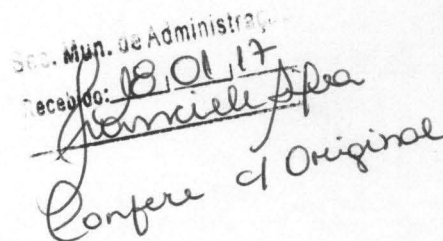 Sec. Mun. de Administraç
Recebido: 18,01,17
Confere c/ Original